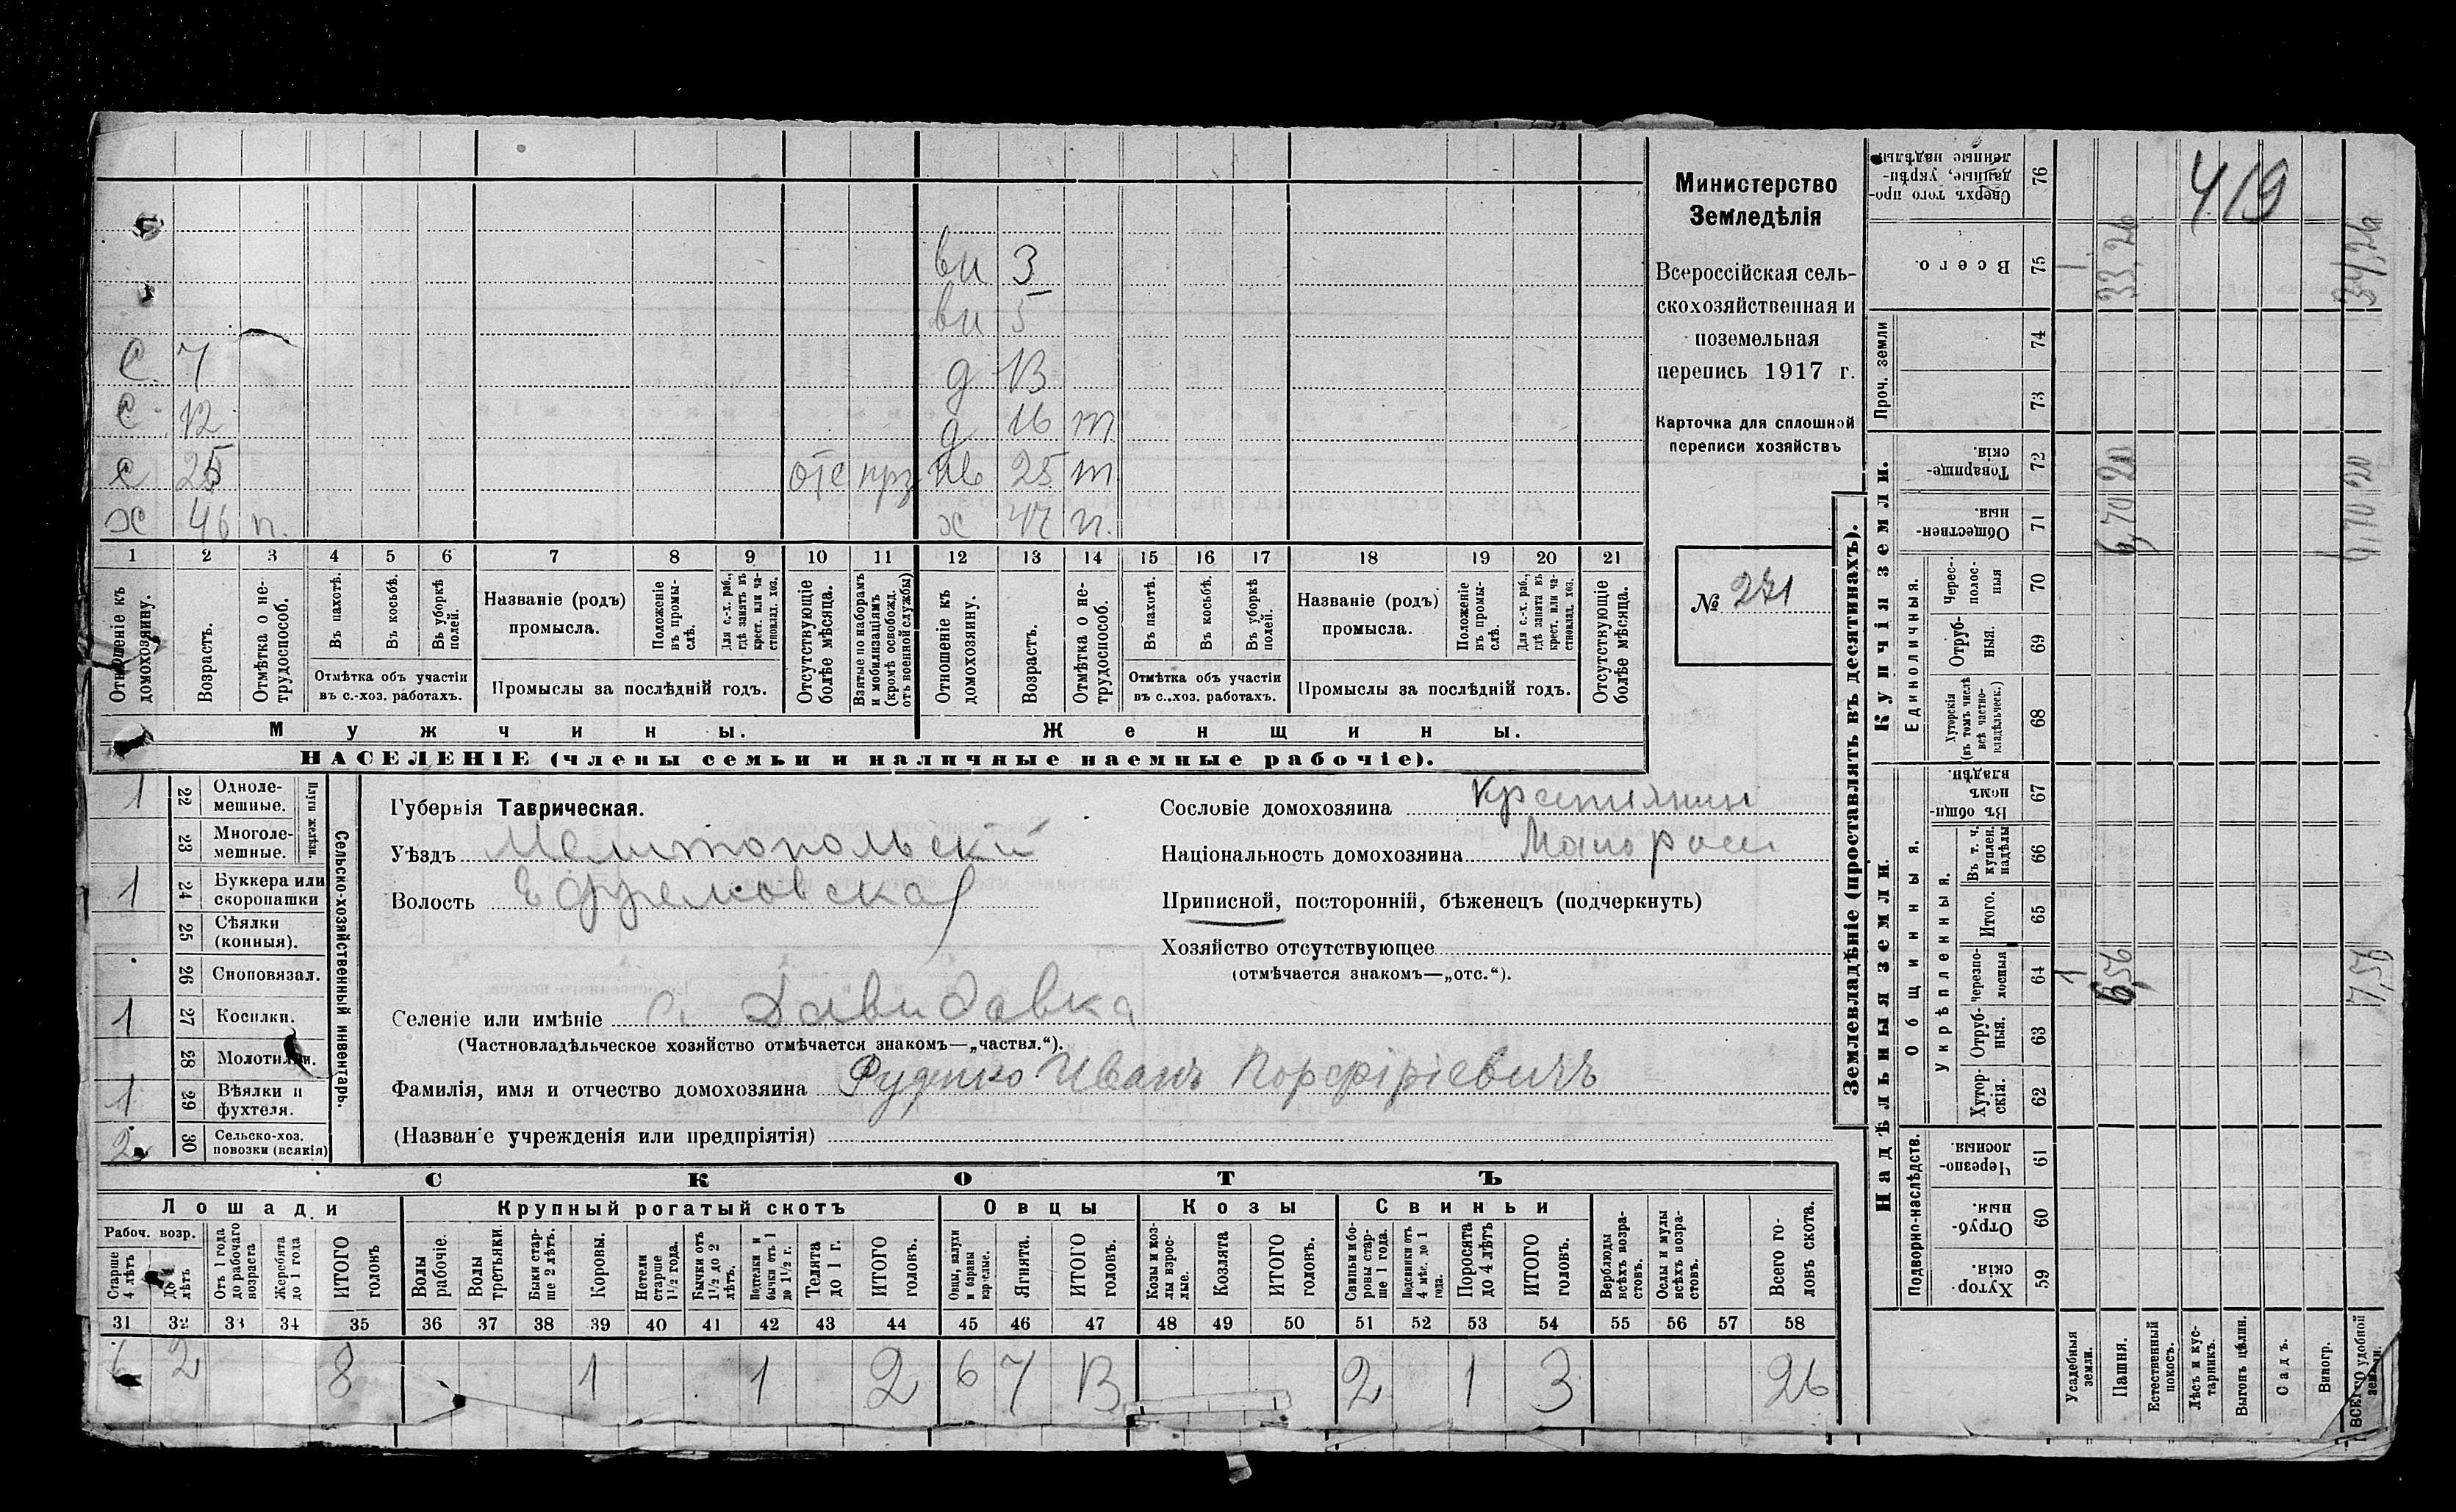 419
Министерство
Земледѣлія
Всероссійская сель-
скохозяйственная и
поземельная
перепись 1917 г.
Карточка для сплошной
переписи хозяйствъ
№ 271
вн 3
вн 5
С 7 д 13
С 12 д 16 т
с 25 отс нрз нв 25 т
х 46 п. х 47 п.
1 2 3 4 5 6 7 8 9 10 11 12 13 14 15 16 17 18 19 20 21
Отношеніе къ домохозяину.
Возрастъ.
Отмѣтка о не-трудоспособ.
Въ пахотѣ.
Въ косьбѣ.
Въ уборкѣ полей.
Отмѣтка объ участіи
въ с.-хоз. работахъ.
Названіе (родъ)
промысла.
Положеніе въ промы-слѣ.
Для с.-х. раб., гдѣ занятъ въ крест. или ча-стновлад. хоз.
Промыслы за послѣдній годъ.
Отсутствующіе болѣе мѣсяца.
Взятые по наборамъ и мобилизаціямъ (кромѣ освобожд. отъ военной службы)
Отношеніе къ домохозяину.
Возрастъ.
Отмѣтка о не-трудоспособ.
Въ пахотѣ.
Въ косьбѣ.
Въ уборкѣ полей.
Отмѣтка объ участіи
въ с.-хоз. работахъ.
Названіе (родъ)
промысла.
Положеніе въ промы-слѣ.
Для с.-х. раб., гдѣ занята въ крест. или ча-стновлад. хоз.
Промыслы за послѣдній годъ.
Отсутствующіе болѣе мѣсяца.
Мужчины. Женщины.
НАСЕЛЕНІЕ (члены семьи и наличные наемные рабочіе).
Сельско-хозяйственный инвентарь.
Плуги желѣзн.
1 22 Одноле-мешные.
23 Многоле-мешные.
1 24 Буккера или скоропашки
25 Сѣялки (конныя).
26 Сноповязал.
1 27 Косилки.
28 Молотилки.
1 29 Вѣялки и фухтеля.
2 30 Сельско-хоз. повозки (всякія)
Губернія Таврическая.
Уѣздъ Мелитопольскій
Волость Ефремовская
Сословіе домохозяина Крестьянин
Національность домохозяина Малоросс
Приписной, посторонній, бѣженецъ (подчеркнуть)
Хозяйство отсутствующее
(отмѣчается знакомъ—„отс.“).
Селеніе или имѣніе с. Давидовка
(Частновладѣльческое хозяйство отмѣчается знакомъ—„частвл.“).
Фамилія, имя и отчество домохозяина Руденко Иванъ Порфиріевичъ
(Названіе учрежденія или предпріятія)
СКОТЪ
Лошади Крупный рогатый скотъ Овцы Козы Свиньи
Рабоч. возр.
Старше 4 лѣтъ
До 4 лѣтъ
Отъ 1 года до рабочаго возраста
Жеребята до 1 года
ИТОГО головъ
Волы рабочіе.
Волы третьяки.
Быки стар-ше 2 лѣтъ.
Коровы.
Нетели старше 1½ года.
Бычки отъ 1½ до 2 лѣтъ.
Нетелки и бычки отъ 1 до 1½ г.
Телята до 1 г.
ИТОГО головъ.
Овцы, валухи и бараны взрослые.
Ягнята.
ИТОГО головъ.
Козы и коз-лы взрос-лые.
Козлята
ИТОГО головъ.
Свиньи и бо-ровы стар-ше 1 года.
Подсвинки отъ 4 мѣс. до 1 года.
Поросята до 4 лѣтъ
ИТОГО головъ.
Верблюды всѣхъ возра-стовъ.
Ослы и мулы всѣхъ возра-стовъ.
Всего го-ловъ скота.
31 32 33 34 35 36 37 38 39 40 41 42 43 44 45 46 47 48 49 50 51 52 53 54 55 56 57 58
6 2 8 1 1 2 6 7 13 2 1 3 26
Землевладѣніе (проставлять въ десятинахъ).
Надѣльныя земли. Купчія земли. Проч. земли
Подворно-наслѣдств. Общинныя. Единоличныя.
Укрѣпленныя.
Хутор-скія. 59
Отруб-ныя. 60
Черезпо-лосныя 61
Хутор-скія. 62
Отруб-ныя. 63
Черезпо-лосныя 64 1 6,56 7,56
Итого. 65
Въ т. ч. куплен. надѣлы 66
Въ общи-номъ владѣн. 67
Хуторскія (въ томъ числѣ всѣ частно-владѣльческ.) 68
Отруб-ныя. 69
Черес-полос-ныя 70
Обществен-ныя. 71
Товарище-скія. 72
73
74
Всего. 75 1 33,26 34,26
Сверхъ того про-данные, укрѣп-ленные надѣлы 76
Усадебныя земли.
Пашня.
Естественный покосъ.
Лѣсъ и кус-тарникъ.
Выгонъ цѣлин.
Садъ.
Виногр.
ВСЕГО удобной земли.